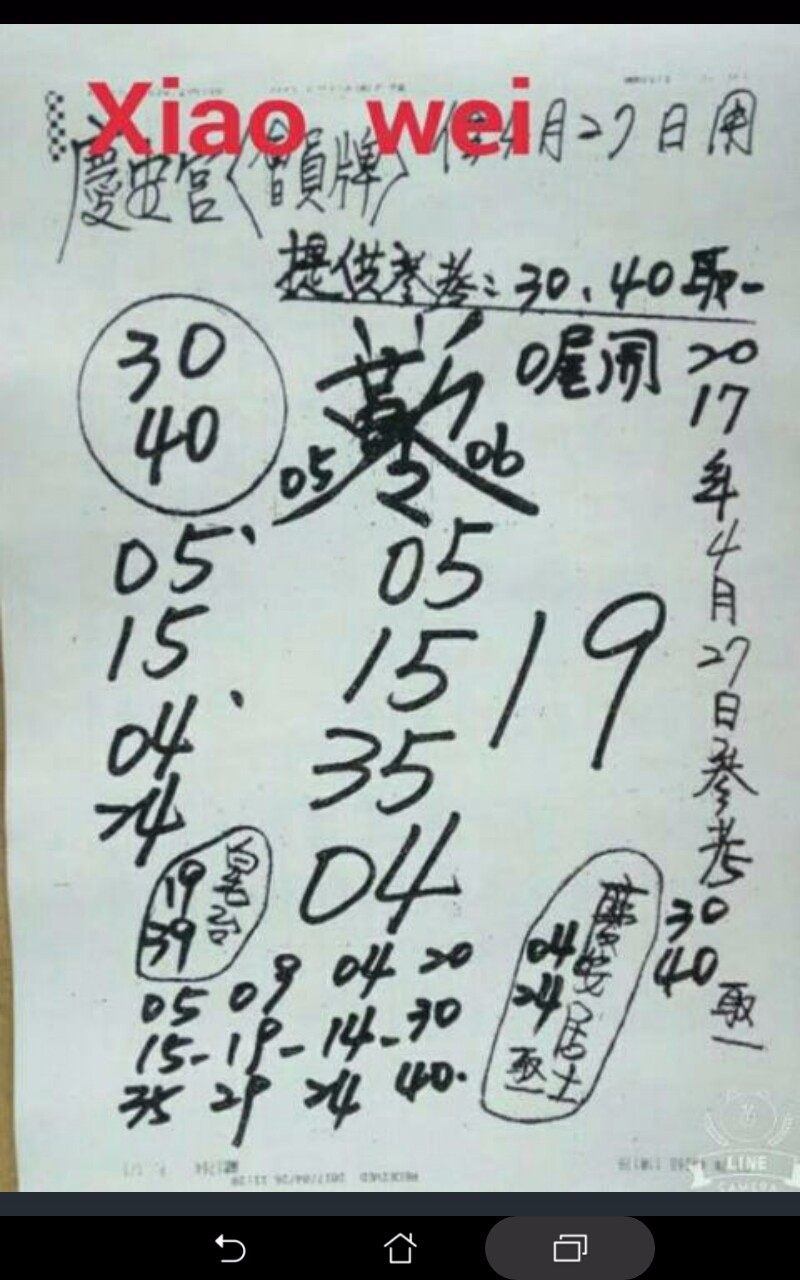 Xiao wei
慶安宮〈會員牌〉 4月27日用
提供參考:30、40取一
30
40
05 06
0尾開
2017年4月27日參考
30
40
取一
05、
15
04、
24
05
15
35
04
19
19
39
04
24
慶安居士
取一
05 09 04 20
15-19-14-30
35 29 24 40.
RECEIVED 2017/04/26 11:20
P. 1/1
LINE
CAMERA